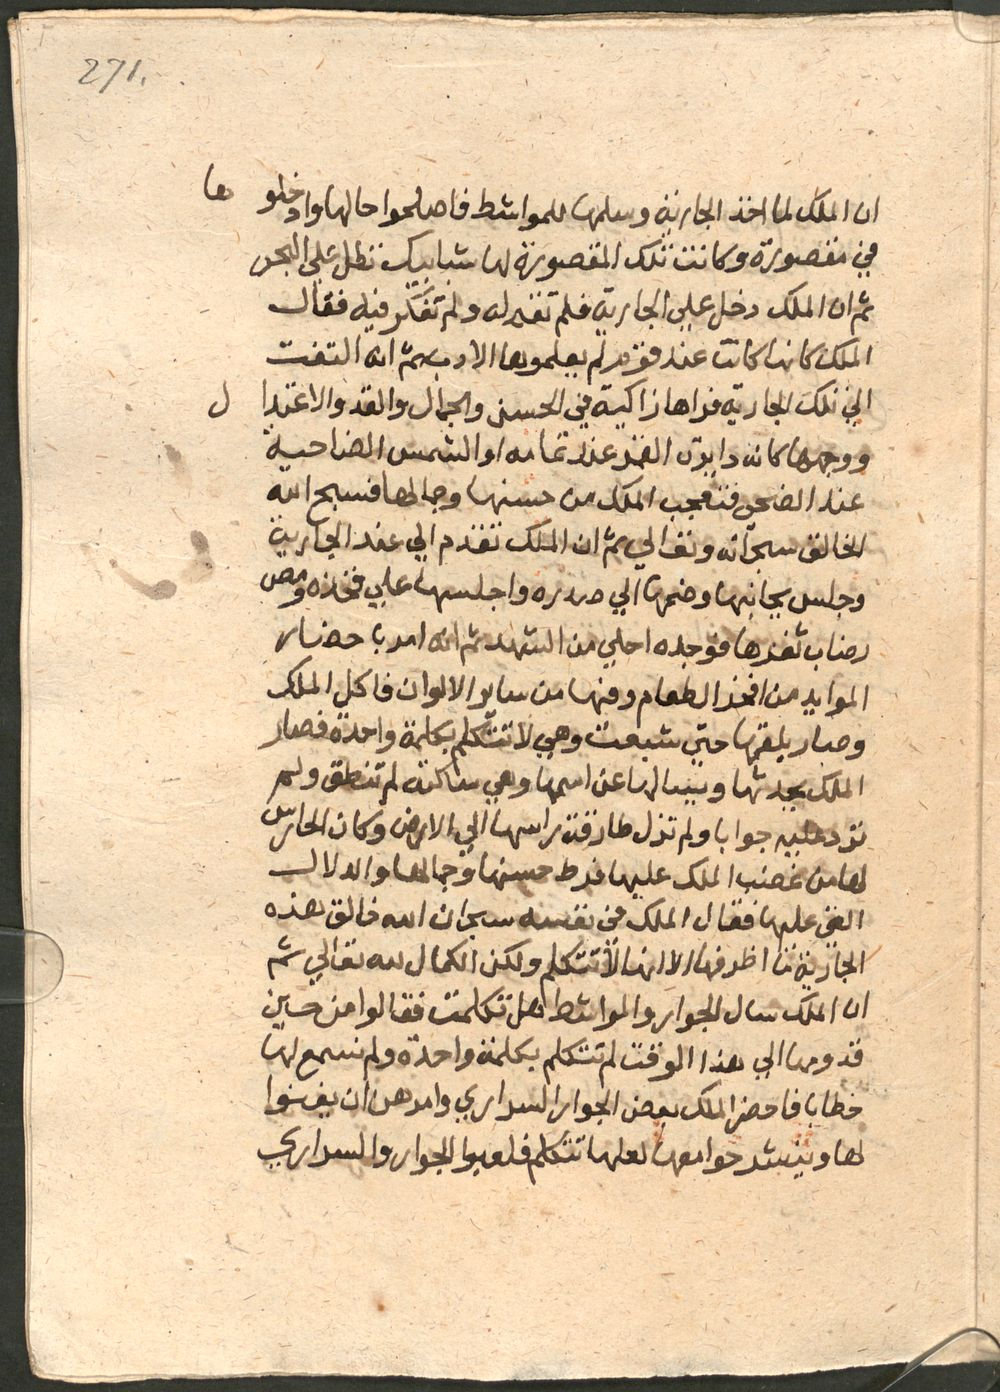 271.
ان الملك لما اخذ الجارية وسلمها للمواشط فاصلحوا حالها وادخلوها
في مقصورة وكانت تلك المقصورة لها شبابيك تطل علي البحر
ثم ان الملك دخل علي الجارية فلم تقم له ولم تفكر فيه فقال
الملك كانها كانت عند قوم لم يعلموها الادب ثم انه التفت
الي تلك الجارية فراها زاكية في الحسن والجمال والقد والاعتدال
ووجهها كانه دايرة القمر عند تمامه او الشمس الضاحية
عند الضحي فتعجب الملك من حسنها وجمالها فسبح الله
الخالق سبحانه وتعالي ثم ان الملك تقدم الي عند الجارية
وجلس بجانبها وضمها الي صدره واجلسها علي فخذه ومص
رضاب ثغرها فوجده احلي من الشهد ثم انه امر باحضار
الموايد من افخر الطعام وفيها من ساير الالوان فاكل الملك
وصار يلقمها حتي شبعت وهي لا تتكلم بكلمة واحدة فصار
الملك يحدثها ويسالها عن اسمها وهي ساكتة لم تنطق ولم
ترد عليه جوابا ولم تزل طارقة براسها الي الارض وكان الحارس
لها من غضب الملك عليها فرط حسنها وجمالها والدلال
الذي عليها فقال الملك في نفسه سبحان الله خالق هذه
الجارية ما اظرفها الا انها لا تتكلم ولكن الكمال لله تعالي ثم
ان الملك سال الجوار والمواشط هل تكلمت فقالوا من حين
قدومها الي هذا الوقت لم تتكلم بكلمة واحدة ولم نسمع لها
خطابا فاحضر الملك بعض الجوار السراري وامرهن ان يغنوا
لها وينشرحوا معها لعلها تتكلم فلعبوا الجوار والسراري